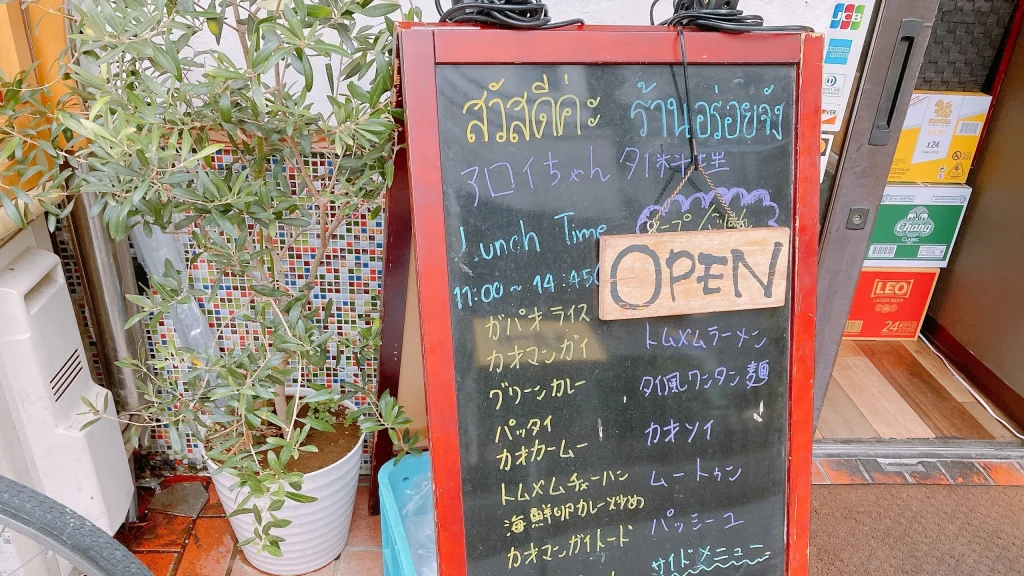 สวัสดีค่ะ ร้านอร่อยจัง
アロイちゃん タイ料理
Lunch Time
11:00~14:45
OPEN
ガパオライス
カオマンガイ
グリーンカレー
パッタイ
カオカームー
トムヤムチャーハン
海鮮卵カレー炒め
カオマンガイトード
トムヤムラーメン
タイ風ワンタン麺
カオソイ
ムートゥン
パッミーユ
サイドメニュー
JCB
x24
Chang
CLASSIC
LEO
LAGER BEER